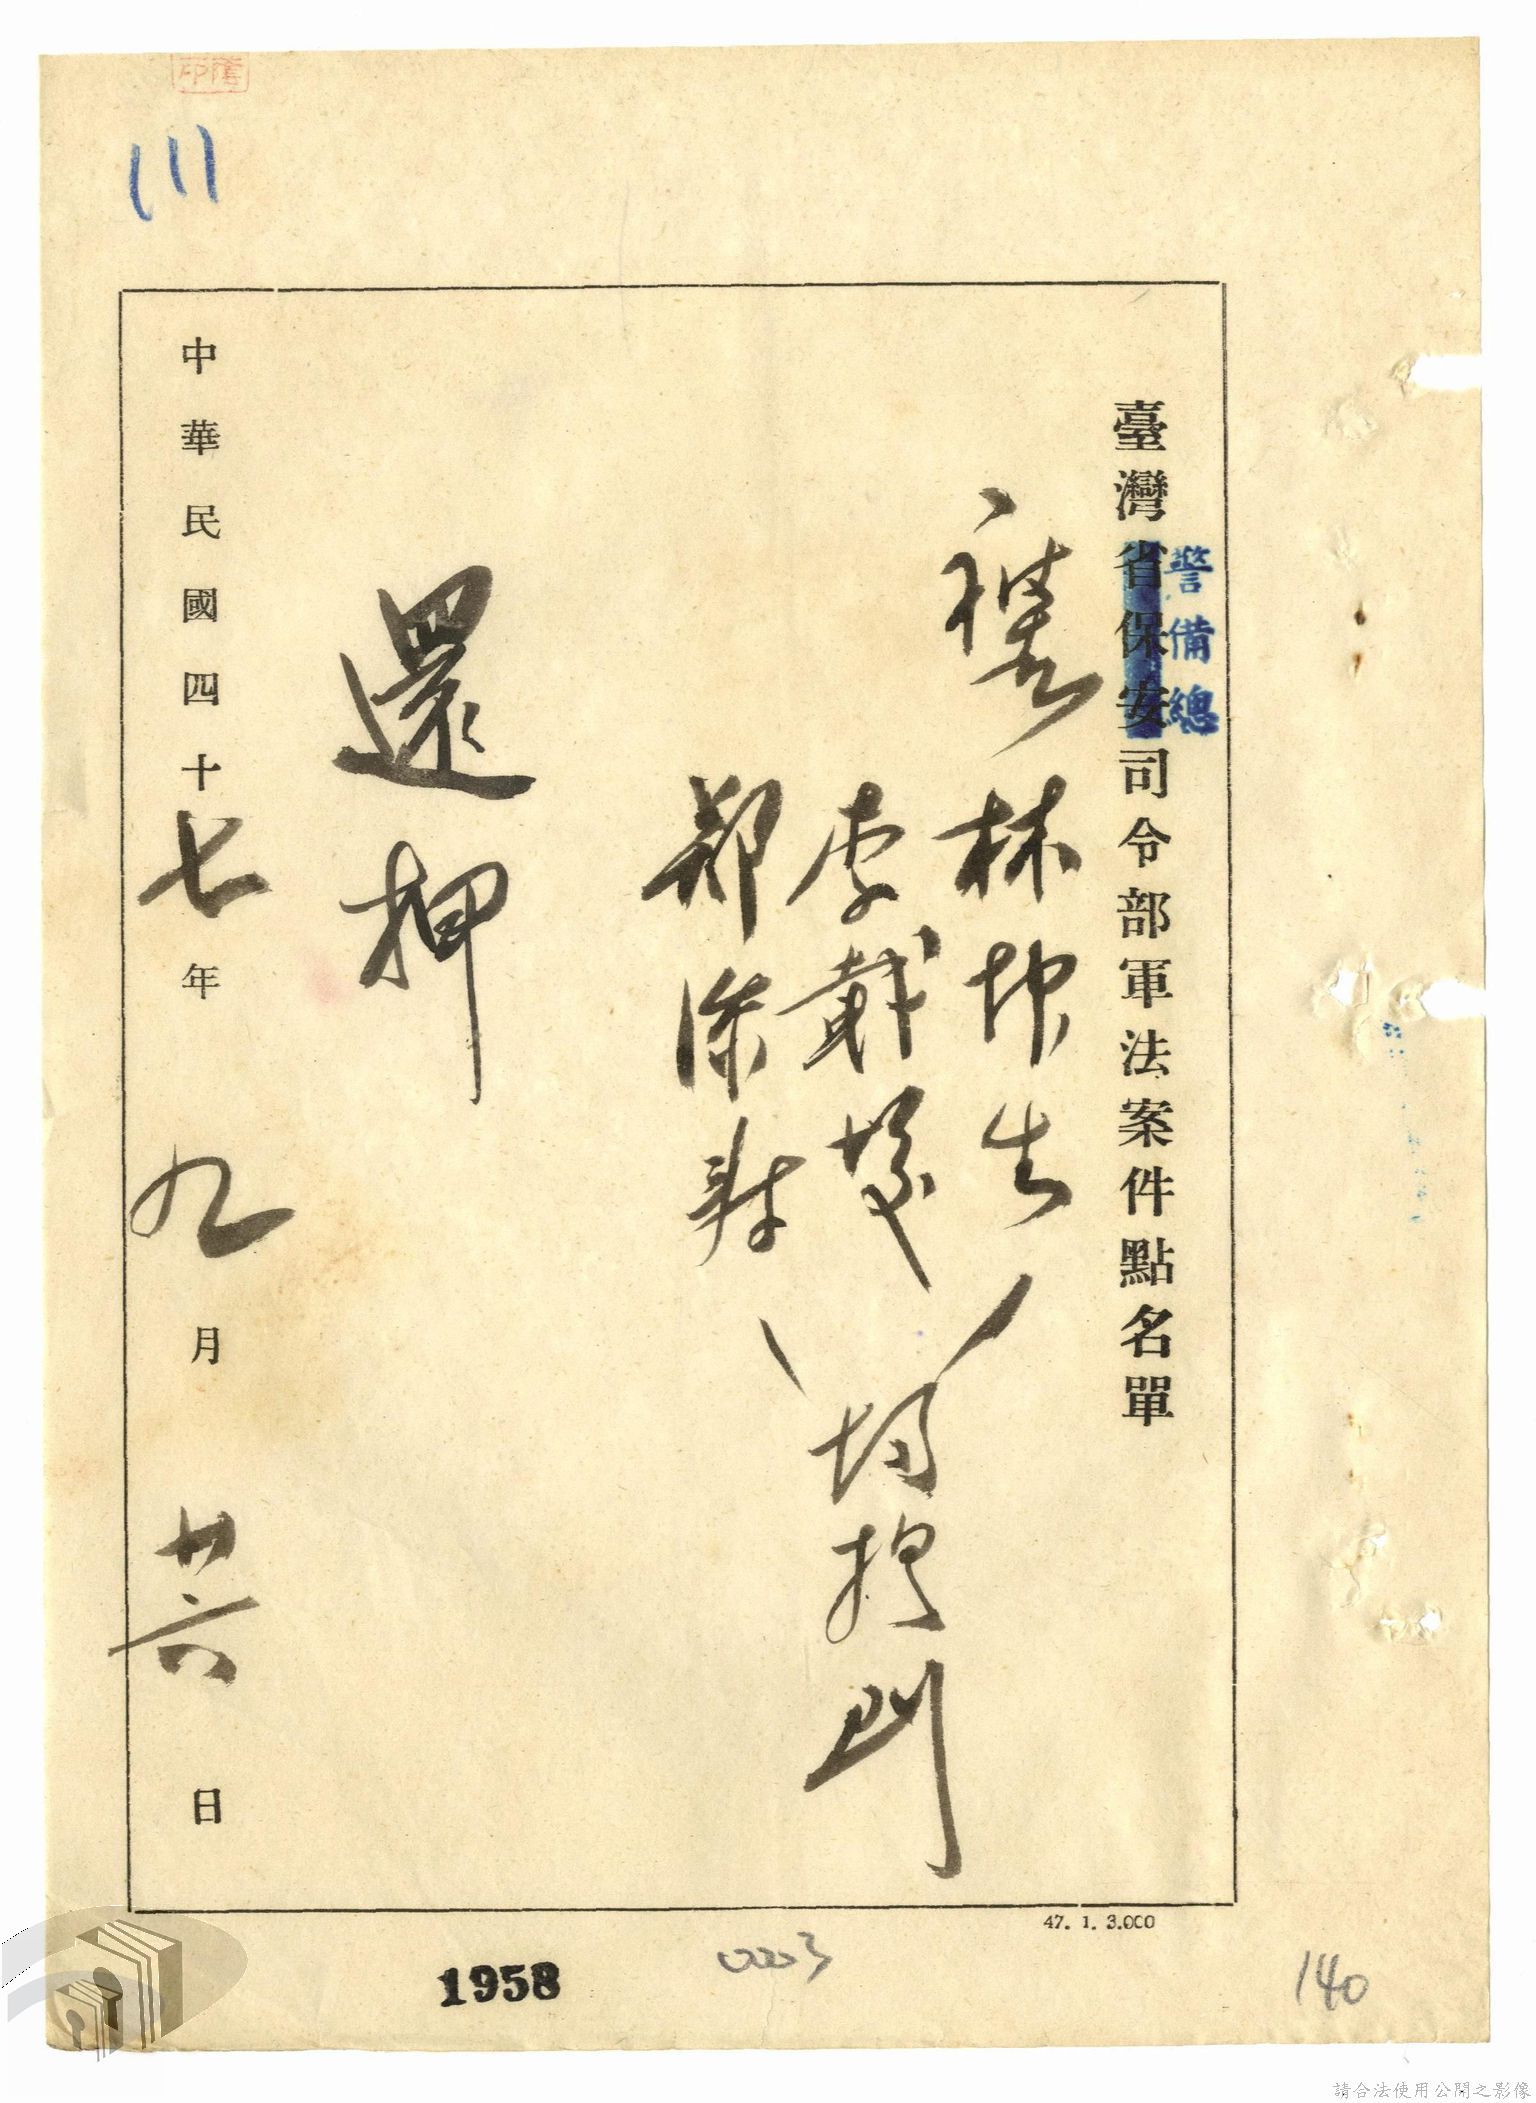 臺灣省保安司令部軍法案件點名單
警備總
林坤生
李載發
鄭添壽
均提到
還押
中華民國四十七年九月廿六日
111
47. 1. 3.000
1958
0003
140
請合法使用公開之影像